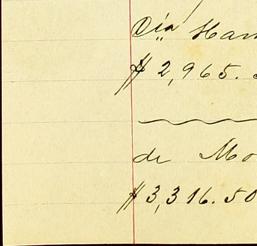 Via Ham
$2,965.
de Mo
$3,316.50